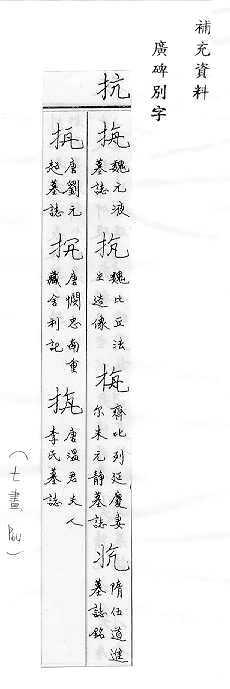 補充資料
廣碑別字
抗
魏元液
墓誌
抗
魏比丘法
生造像
齊比列延慶妻
尔朱元靜墓誌
隋伍道進
墓誌銘
唐劉元
超墓誌
唐憫忠南重
藏舍利記
唐溫君夫人
李氏墓誌
(七畫 P60)